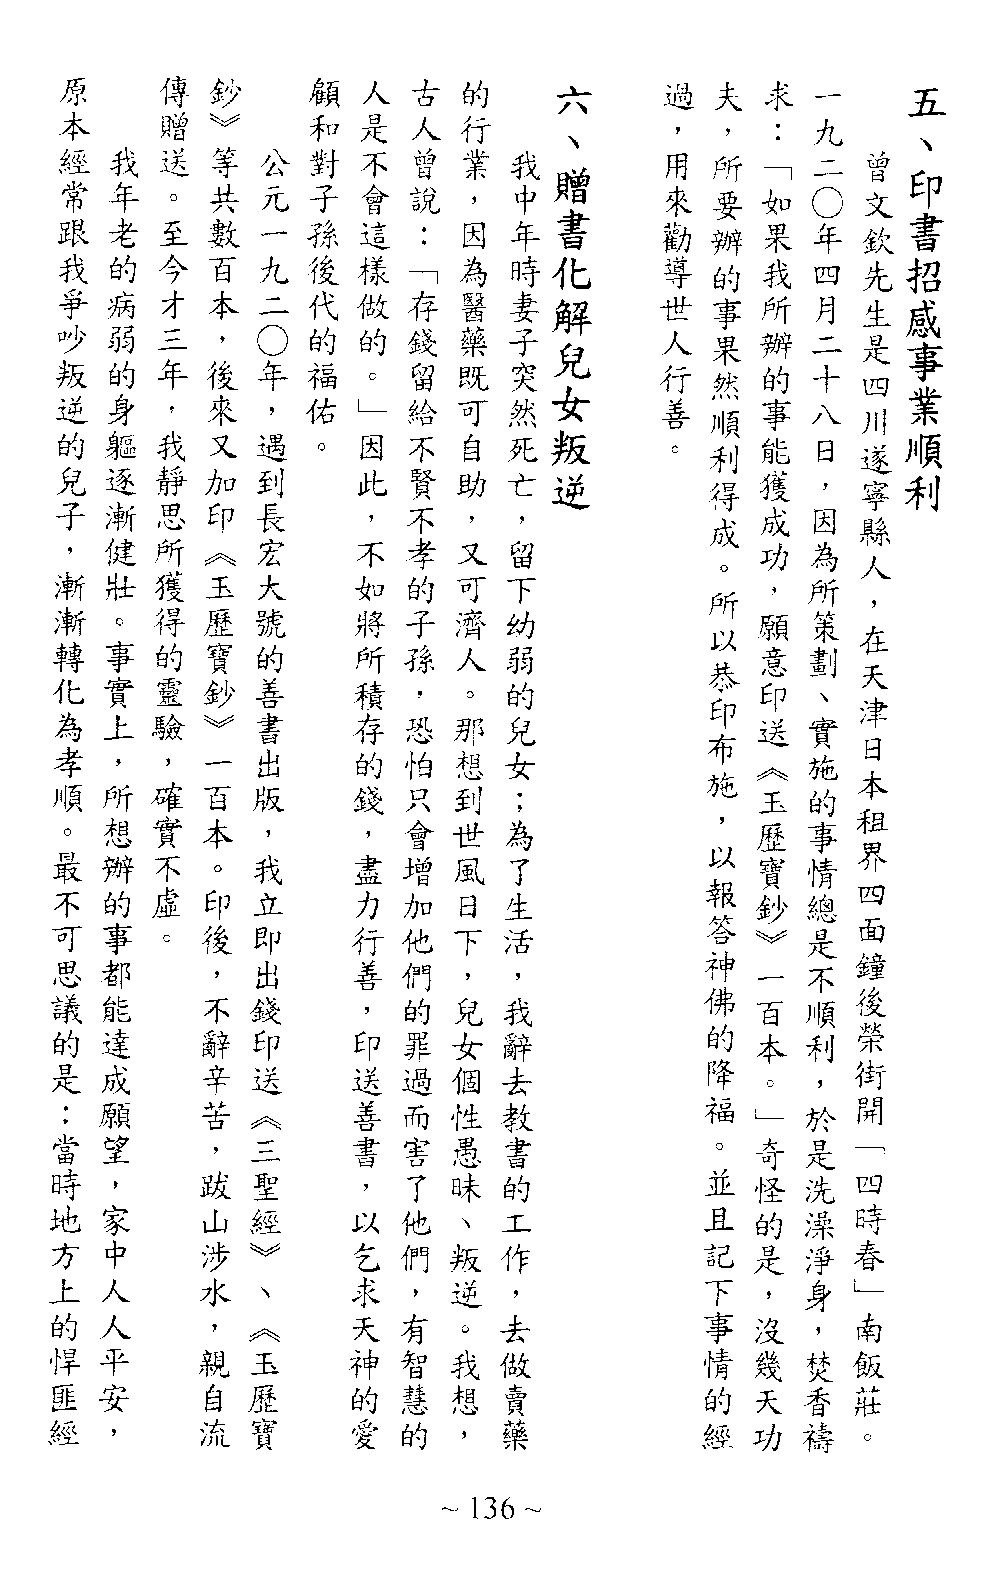 五、印書招感事業順利
曾文欽先生是四川遂寧縣人，在天津日本租界四面鐘後榮街開「四時春」南飯莊。
一九二〇年四月二十八日，因為所策劃、實施的事情總是不順利，於是洗澡淨身，焚香禱
求：「如果我所辦的事能獲成功，願意印送《玉歷寶鈔》一百本。」奇怪的是，沒幾天功
夫，所要辦的事果然順利得成。所以恭印布施，以報答神佛的降福。並且記下事情的經
過，用來勸導世人行善。
六、贈書化解兒女叛逆
我中年時妻子突然死亡，留下幼弱的兒女；為了生活，我辭去教書的工作，去做賣藥
的行業，因為醫藥既可自助，又可濟人。那想到世風日下，兒女個性愚昧、叛逆。我想，
古人曾說：「存錢留給不賢不孝的子孫，恐怕只會增加他們的罪過而害了他們，有智慧的
人是不會這樣做的。」因此，不如將所積存的錢，盡力行善，印送善書，以乞求天神的愛
顧和對子孫後代的福佑。
公元一九二〇年，遇到長宏大號的善書出版，我立即出錢印送《三聖經》、《玉歷寶
鈔》等共數百本，後來又加印《玉歷寶鈔》一百本。印後，不辭辛苦，跋山涉水，親自流
傳贈送。至今才三年，我靜思所獲得的靈驗，確實不虛。
我年老的病弱的身軀逐漸健壯。事實上，所想辦的事都能達成願望，家中人人平安，
原本經常跟我爭吵叛逆的兒子，漸漸轉化為孝順。最不可思議的是：當時地方上的悍匪經
~ 136 ~